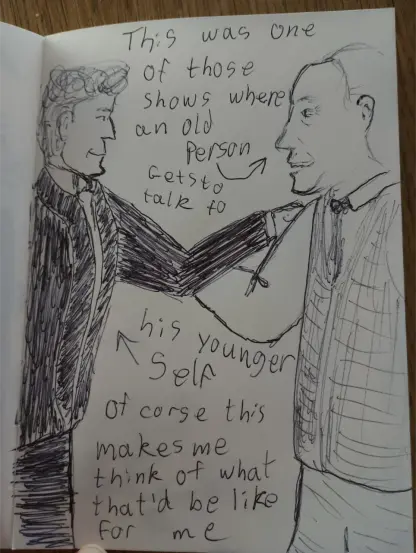 This was one
of those
shows where
an old
Person
Gets to
talk to
his younger
Self
Of corse this
makes me
think of what
that'd be like
for me